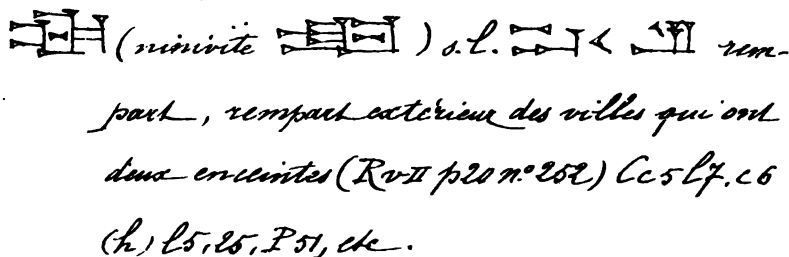 (ninivïte ) s.l. rem-
part, rempart extérieur des villes qui ont
deux enceintes (RvII p20 n.° 252) Cc5 l7. c6
(h) l5, 25, P51, etc.